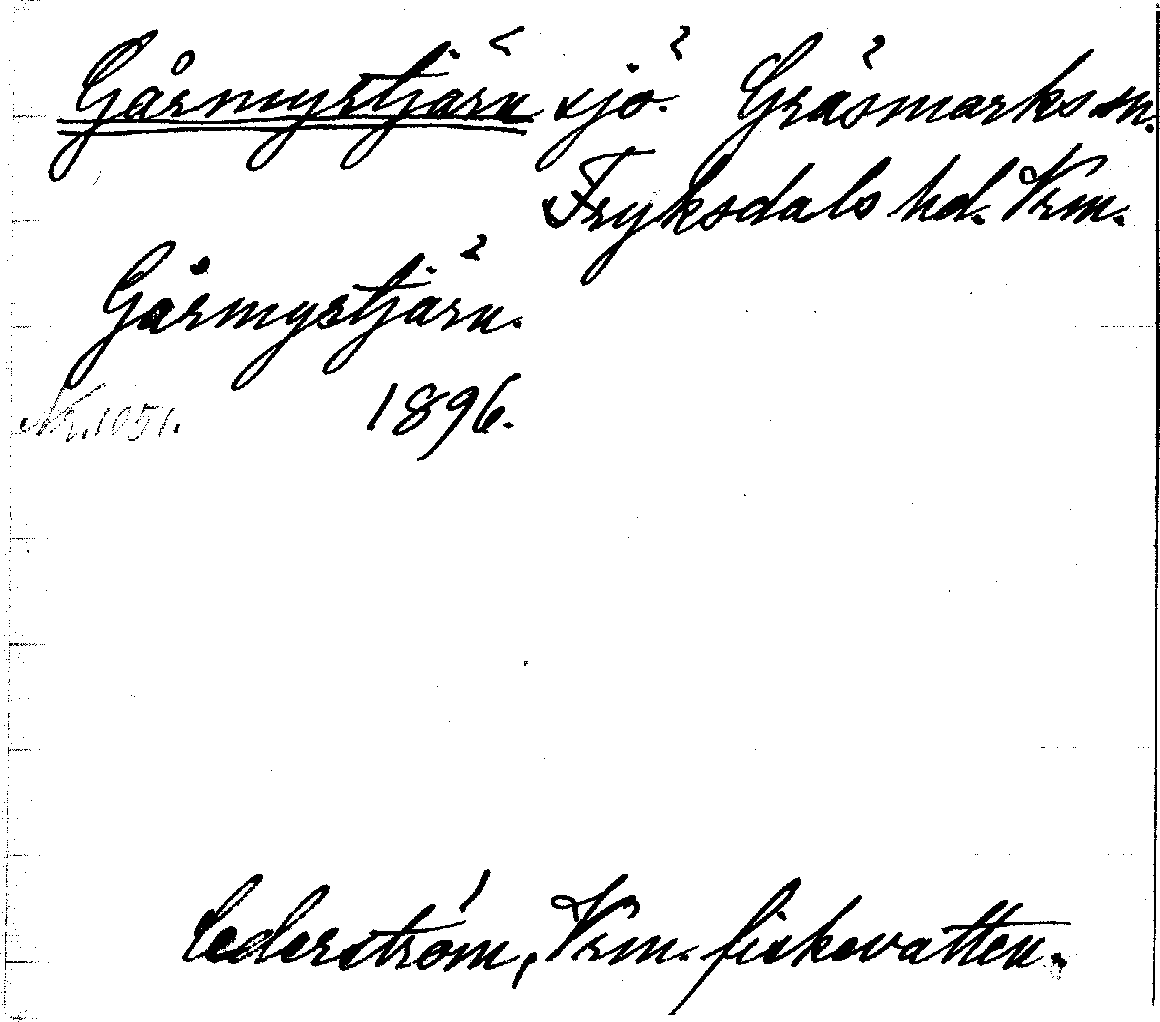 Gårmystjärn sjö. Gräsmarks sn.
Fryksdals hd. Vrm.
Gårmystjärn.
Nr. 1051. 1896.
Cederström, Vrm. fiskevatten.